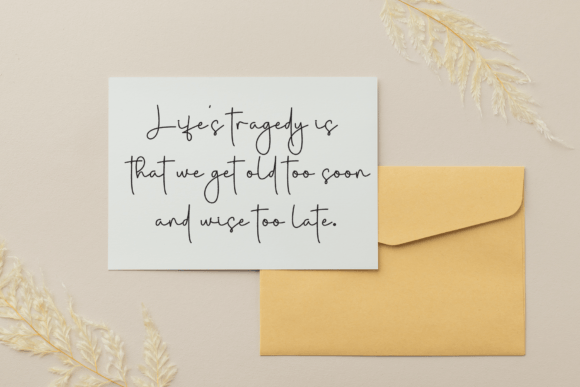 Life's tragedy is
that we get old too soon
and wise too late.